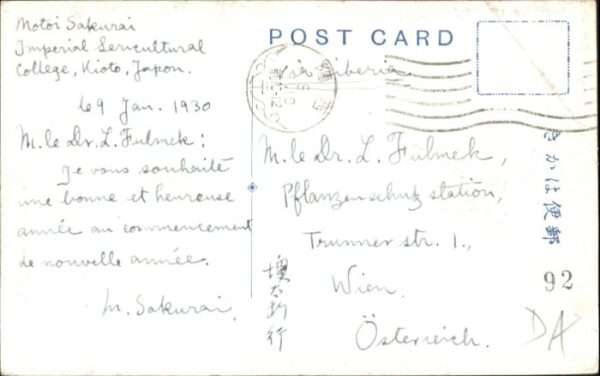 Motoi Sakurai
Imperial Sericultural
College, Kioto, Japon.
le 9 Jan. 1930
M. le Dr. L. Fulmek:
Je vous souhaite
une bonne et heureuse
année au commencement
de nouvelle année.
M. Sakurai.
POST CARD
Via Siberia
M. le Dr. L. Fulmek,
Pflanzenschutzstation,
Trunner str. 1.,
Wien,
Österreich.
墺太利行
きかは便郵
92
DA